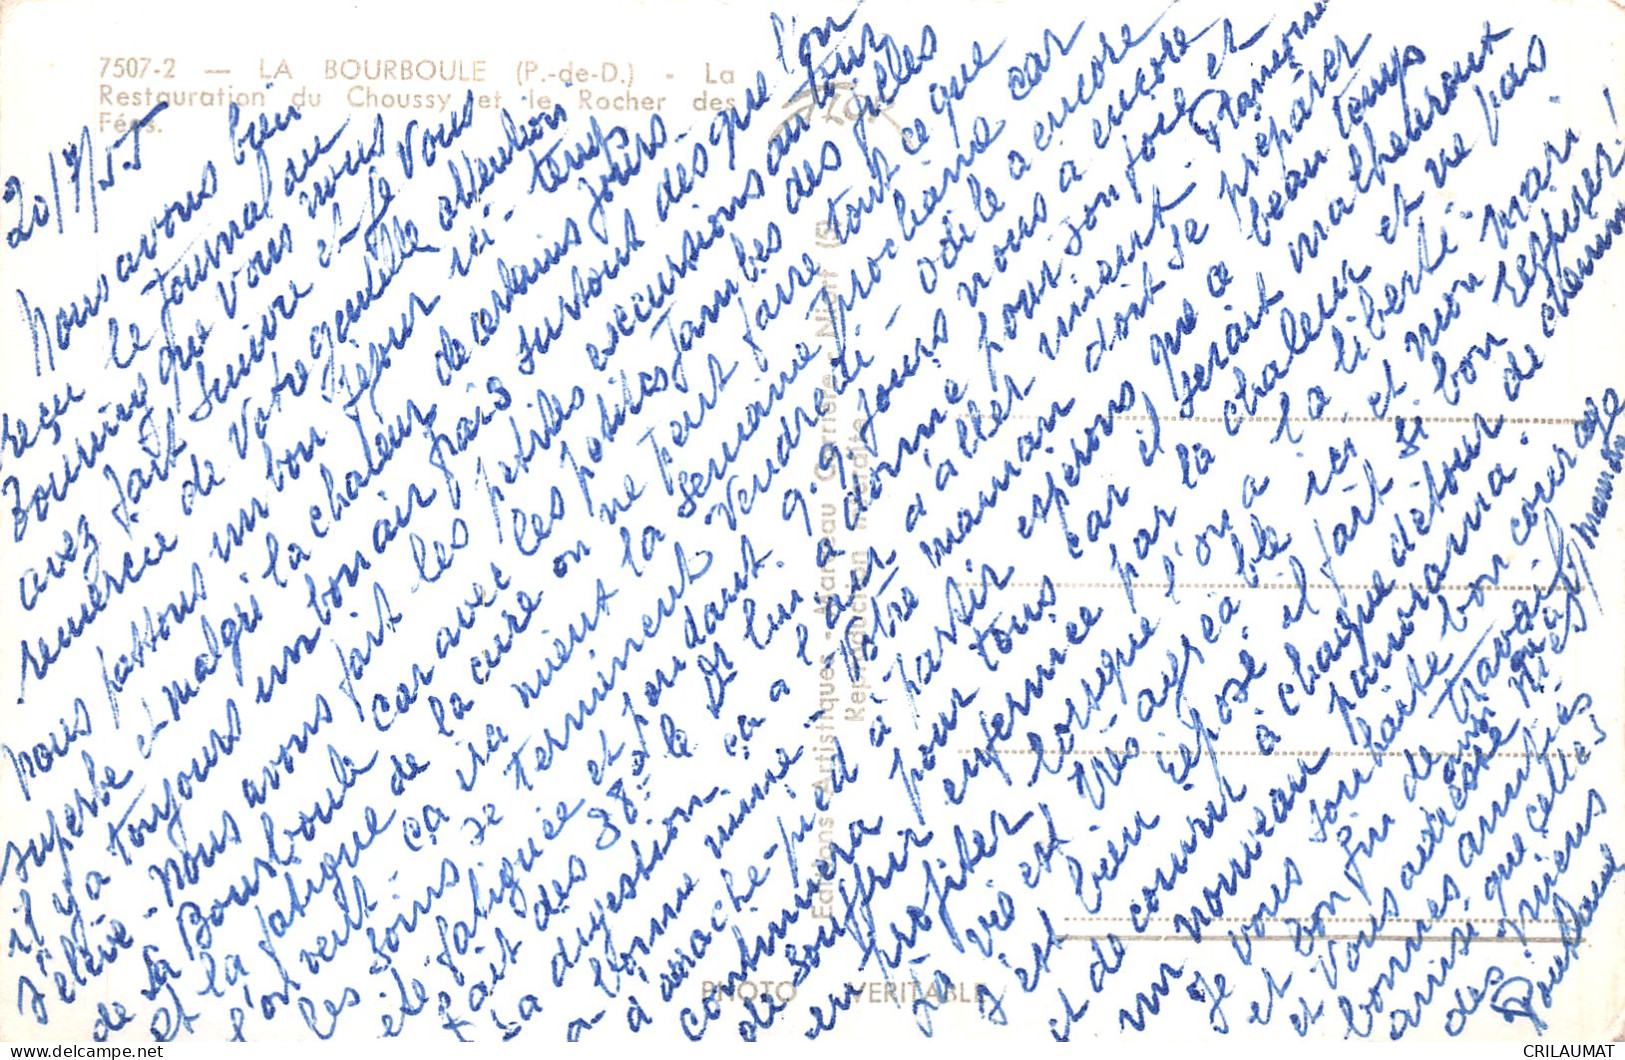 7507-2 — LA BOURBOULE (P.-de-D.) - La
Restauration du Choussy et le Rocher des
Fées.
20/7/55
Nous avons bien
reçu le journal du
que vous nous
avez fait suivre et je vous
remercie de votre gentille attention
Nous passons un bon séjour ici - temps
superbe et malgré la chaleur de certains jours -
il y a toujours un bon air frais surtout dès que l'on
s'élève - Nous avons fait les petites excursions autour
de la Bourboule car avec les petites jambes des filles
et la fatigue de la cure on ne peut faire tout ce que
l'on veut - ça ira mieux la semaine prochaine car
les soins se terminent Vendredi - Odile a encore
été fatiguée et pendant 8.9 jours nous a encore
fait des 38° le Dr lui a donné pour son foie et
sa digestion ça a l'air d'aller mieux -
à bonne mine votre maman doit se préparer
d'arrache-pied à partir espérons que le beau temps
continuera pour tous car il serait malheureux
de souffrir enfermée par la chaleur et ne pas
en profiter lorsque l'on a la liberté -
La vie est très agréable ici, et mon mari
s'est bien reposé. il fait si bon respirer !
et découvrir à chaque détour de chemin
un nouveau panorama.
Je vous souhaite bon courage
et bon fin de travail
et vous adresse ainsi qu'à
bonnes amitiés
ainsi que celles
des miens
Editions Artistiques - Marceau Carrière, Niort (S)
Reproduction interdite
PHOTO VERITABLE
CRILAUMAT